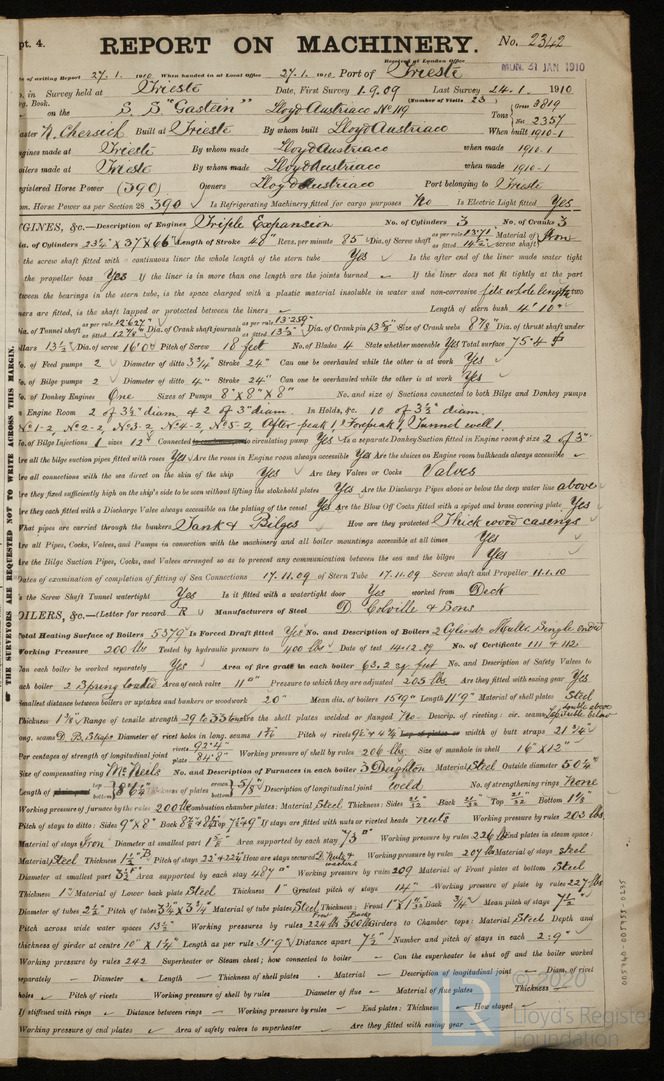 pt. 4.
REPORT ON MACHINERY.
No. 2342
Received at London Office
MON. 31 JAN 1910
of writing Report 27.1. 1910 When handed in at Local Office 27.1. 1910 Port of Trieste
in Survey held at Trieste Date, First Survey 1.9.09 Last Survey 24.1. 1910
Book. (Number of Visits 23)
on the S.S. "Gastein" Lloyd Austriaco No 119 Tons Gross 3819 Net 2357
aster N. Chersich Built at Trieste By whom built Lloyd Austriaco When built 1910-1
ngines made at Trieste By whom made Lloyd Austriaco when made 1910-1
oilers made at Trieste By whom made Lloyd Austriaco when made 1910-1
gistered Horse Power (390) Owners Lloyd Austriaco Port belonging to Trieste
m. Horse Power as per Section 28 390 Is Refrigerating Machinery fitted for cargo purposes No Is Electric Light fitted Yes
NGINES, &c.—Description of Engines Triple Expansion No. of Cylinders 3 No. of Cranks 3
ia. of Cylinders 23½" x 37" x 66" Length of Stroke 48" Revs. per minute 85 Dia. of Screw shaft as per rule 13.71" as fitted 14½" Material of screw shaft Iron
the screw shaft fitted with a continuous liner the whole length of the stern tube Yes Is the after end of the liner made water tight
the propeller boss Yes If the liner is in more than one length are the joints burned If the liner does not fit tightly at the part
between the bearings in the stern tube, is the space charged with a plastic material insoluble in water and non-corrosive fits whole length If two
ners are fitted, is the shaft lapped or protected between the liners Length of stern bush 4' 10"
ia. of Tunnel shaft as per rule 12.627" as fitted Dia. of Crank shaft journals as per rule 13.259" as fitted 13½" Dia. of Crank pin 13⅝" Size of Crank webs 8⅞" Dia. of thrust shaft under
ollars 13½ Dia. of screw 16'0" Pitch of Screw 18 feet No. of Blades 4 State whether moveable Yes Total surface 75.4
o. of Feed pumps 2 Diameter of ditto 3¾" Stroke 24" Can one be overhauled while the other is at work Yes
o. of Bilge pumps 2 Diameter of ditto 4" Stroke 24" Can one be overhauled while the other is at work Yes
o. of Donkey Engines One Sizes of Pumps 8" x 8" x 8" No. and size of Suctions connected to both Bilge and Donkey pumps
n Engine Room 2 of 3½" diam. & 2 of 3" diam. In Holds, &c. 10 of 3½" diam.
No 1-2, No 2-2, No 3-2, No 4-2, No 5-2, After peak 1, Forepeak 1, Tunnel well 1.
o. of Bilge Injections 1 sizes 12" Connected to circulating pump Yes Is a separate Donkey Suction fitted in Engine room & size 2 of 3"
re all the bilge suction pipes fitted with roses Yes Are the roses in Engine room always accessible Yes Are the sluices on Engine room bulkheads always accessible
re all connections with the sea direct on the skin of the ship Yes Are they Valves or Cocks Valves
re they fixed sufficiently high on the ship's side to be seen without lifting the stokehold plates Yes Are the Discharge Pipes above or below the deep water line above
re they each fitted with a Discharge Valve always accessible on the plating of the vessel Yes Are the Blow Off Cocks fitted with a spigot and brass covering plate Yes
What pipes are carried through the bunkers Tank & Bilges How are they protected Thick wood casings
re all Pipes, Cocks, Valves, and Pumps in connection with the machinery and all boiler mountings accessible at all times Yes
re the Bilge Suction Pipes, Cocks, and Valves arranged so as to prevent any communication between the sea and the bilges Yes
Dates of examination of completion of fitting of Sea Connections 17.11.09 of Stern Tube 17.11.09 Screw shaft and Propeller 11.1.10
s the Screw Shaft Tunnel watertight Yes Is it fitted with a watertight door Yes worked from Deck
OILERS, &c.—(Letter for record R) Manufacturers of Steel D. Colville & Sons
Total Heating Surface of Boilers 5579 Is Forced Draft fitted Yes No. and Description of Boilers 2 Cylind. Multr. Single ended
Working Pressure 200 lbs Tested by hydraulic pressure to 400 lbs Date of test 14.12.09 No. of Certificate 111 & 112
Can each boiler be worked separately Yes Area of fire grate in each boiler 63.2 sq feet No. and Description of Safety Valves to
each boiler 2 Spring loaded Area of each valve 11" Pressure to which they are adjusted 205 lbs Are they fitted with easing gear Yes
Smallest distance between boilers or uptakes and bunkers or woodwork 20" Mean dia. of boilers 15'9" Length 11'9" Material of shell plates Steel
Thickness Range of tensile strength 29 to 33 tons Are the shell plates welded or flanged No Descrip. of riveting: cir. seams
long. seams D.B. Straps Diameter of rivet holes in long. seams Pitch of rivets width of butt straps 21¾"
Per centages of strength of longitudinal joint rivets 92.4" plate 84.8" Working pressure of shell by rules 206 lbs. Size of manhole in shell 16" x 12"
Size of compensating ring McNeils No. and Description of Furnaces in each boiler 3 Deighton Material Steel Outside diameter 50¼"
Length of top bottom Thickness of plates crown bottom ⅝" Description of longitudinal joint weld No. of strengthening rings None
Working pressure of furnace by the rules 200 lbs Combustion chamber plates: Material Steel Thickness: Sides 21/32 Back 21/32 Top 21/32 Bottom 1⅛"
Pitch of stays to ditto: Sides 9" x 8" Back Top If stays are fitted with nuts or riveted heads nuts Working pressure by rules 203 lbs.
Material of stays Iron Diameter at smallest part 1⅝" Area supported by each stay 73" Working pressure by rules 226 lbs End plates in steam space:
Material Steel Thickness Pitch of stays How are stays secured D. Nuts & washers Working pressure by rules 207 lbs Material of stays steel
Diameter at smallest part Area supported by each stay 487 Working pressure by rules 209 Material of Front plates at bottom Steel
Thickness 1" Material of Lower back plate Steel Thickness 1" Greatest pitch of stays 14" Working pressure of plate by rules 227 lbs
Diameter of tubes 2½" Pitch of tubes 3¾" x 3¾" Material of tube plates Steel Thickness: Front Back ¾" Mean pitch of stays 7½"
Pitch across wide water spaces 13½" Working pressures by rules Front 224 lbs Backs 300 lbs Girders to Chamber tops: Material Steel Depth and
thickness of girder at centre 10" x 1¼" Length as per rule Distance apart 7½" Number and pitch of stays in each 2: 9"
Working pressure by rules 242 Superheater or Steam chest; how connected to boiler Can the superheater be shut off and the boiler worked
separately Diameter Length Thickness of shell plates Material Description of longitudinal joint Diam. of rivet
holes Pitch of rivets Working pressure of shell by rules Diameter of flue Material of flue plates Thickness
If stiffened with rings Distance between rings Working pressure by rules End plates: Thickness How stayed
Working pressure of end plates Area of safety valves to superheater Are they fitted with easing gear
THE SURVEYORS ARE REQUESTED NOT TO WRITE ACROSS THIS MARGIN.
005740-005753-0235
© 2020
Lloyd's Register
Foundation
LR